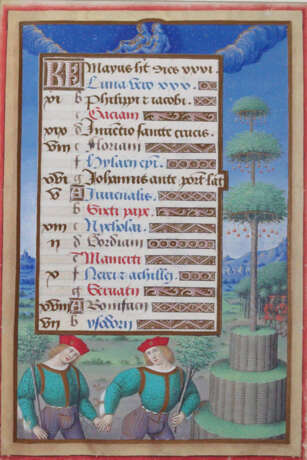 KL Mayus ht dies xxxi
Luna vero xxx
xi b Philippi et iacobi
c
xix d Inventio sancte crucis
viii e Floriani
f
xvi g Johannis ante port lat
v A Juvenalis
b Sixti pape
xiii c Nycholai
ii d Gordiani
e Mamerti
x f Nerei et achillei
g Servatii
xviii A Bonifacii
vii b ysidori